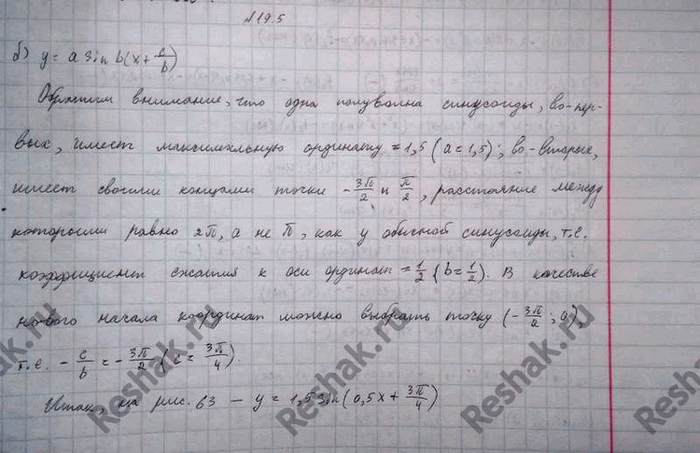 №19.5
б) y = a sin b(x + c/b)
Обратим внимание, что одна полуволна синусоиды, во-пер-
вых, имеет максимальную ординату = 1,5 (a = 1,5); во-вторых,
имеет своими концами точки -3π/2 и π/2, расстояние между
которыми равно 2π, а не π, как у обычной синусоиды, т.е.
коэффициент сжатия к оси ординат = 1/2 (b = 1/2). В качестве
нового начала координат можно выбрать точку (-3π/2; 0),
т.е. -c/b = -3π/2 (c = 3π/4).
Итак, на рис. 63 - y = 1,5 sin(0,5x + 3π/4)
Reshak.ru
Reshak.ru
Reshak.ru
Reshak.ru